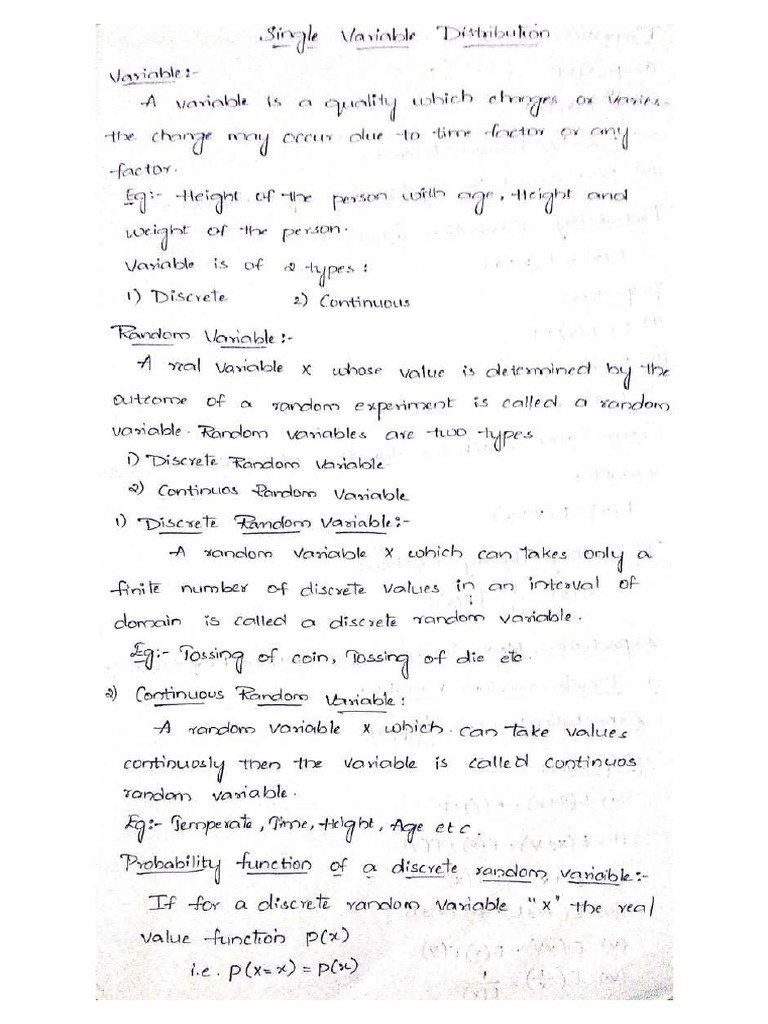 Single Variable Distribution
Variable:-
A variable is a quality which changes or varies.
the change may occur due to time factor or any
factor.
Eg:- Height of the person with age, Height and
weight of the person.
Variable is of 2 types:
1) Discrete 2) Continuous
Random Variable:-
A real variable X whose value is determined by the
outcome of a random experiment is called a random
variable. Random variables are two types
1) Discrete Random Variable
2) Continuos Random Variable
1) Discrete Random Variable:-
A random variable X which can takes only a
finite number of discrete values in an interval of
domain is called a discrete random variable.
Eg:- Tossing of coin, Tossing of die etc.
2) Continuous Random Variable:
A random variable X which can take values
continuosly then the variable is called continuos
random variable.
Eg:- Temperate, Time, Height, Age etc.
Probability function of a discrete random variaible:-
If for a discrete random variable "X" the real
value function p(x)
i.e. p(X=x) = p(x)